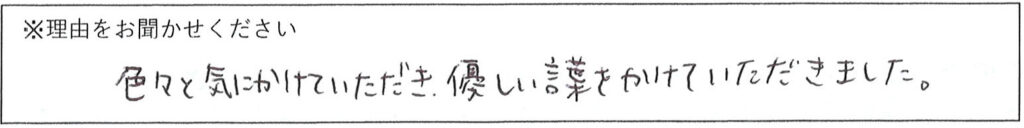 ※理由をお聞かせください
色々と気にかけていただき、優しい言葉をかけていただきました。